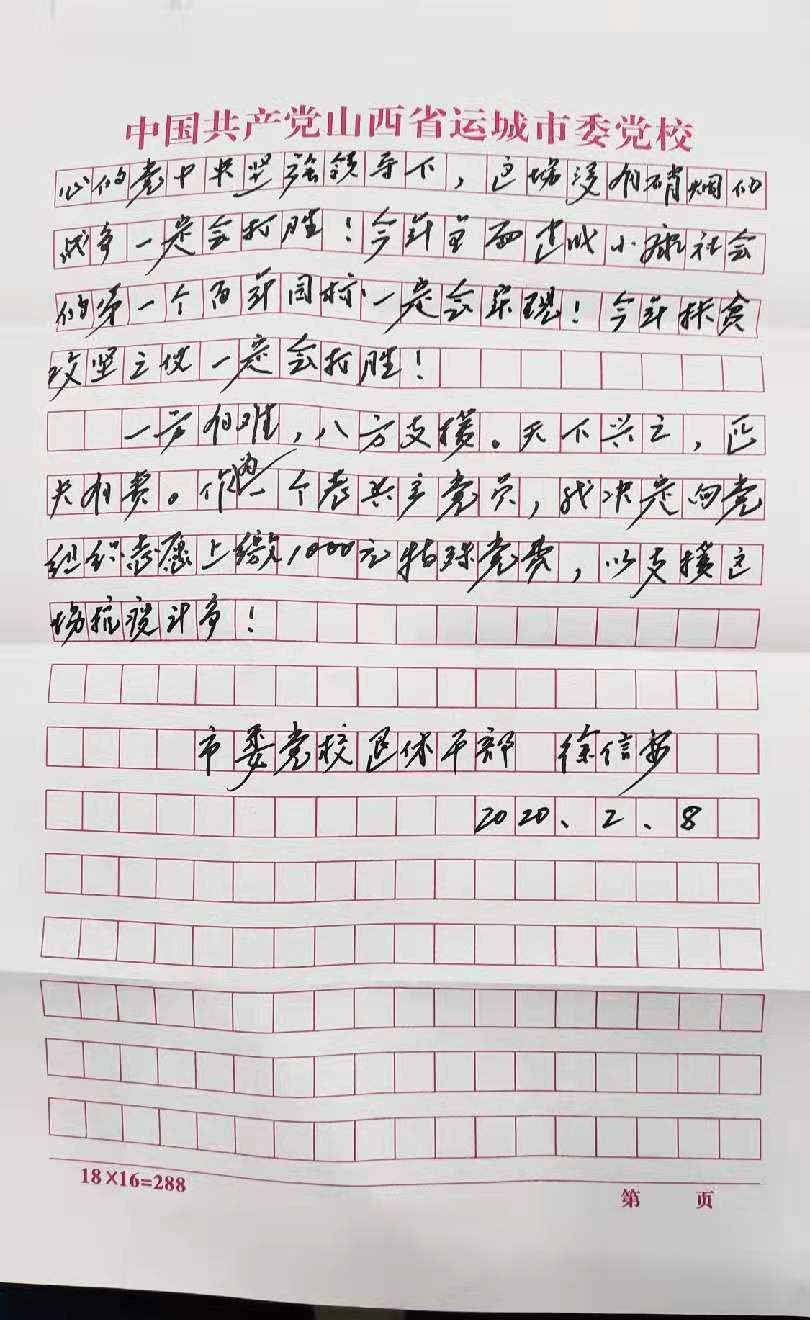 中国共产党山西省运城市委党校
心的党中央坚强领导下，这场没有硝烟的
战争一定会打胜！今年全面建成小康社会
的第一个百年目标一定会实现！今年扶贫
攻坚之仗一定会打胜！
一方有难，八方支援。天下兴亡，匹
夫有责。作为一个老共产党员，我决定向党
组织志愿上缴1000元特殊党费，以支援这
场抗疫斗争！
市委党校退休干部 徐信安
2020、2、8
18×16=288
第 页